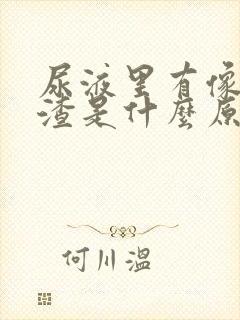 尿液里有像
渣是什麼原
何川溫